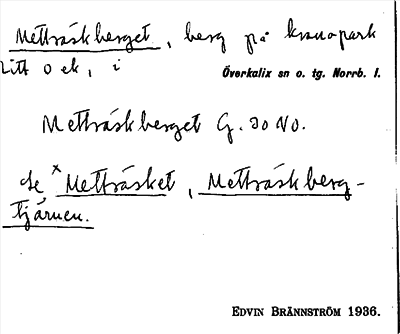 Metträskberget, berg på kronopark
Litt o ek, i Överkalix sn o. tg. Norrb. l.
Metträskberget G. 30 NO.
se x Metträsket, Metträskberg-
tjärnen.
EDVIN BRÄNNSTRÖM 1936.